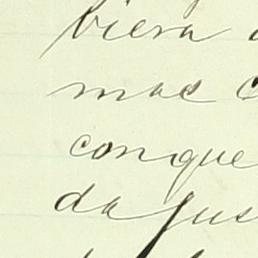 biera
mas
conque
da jus